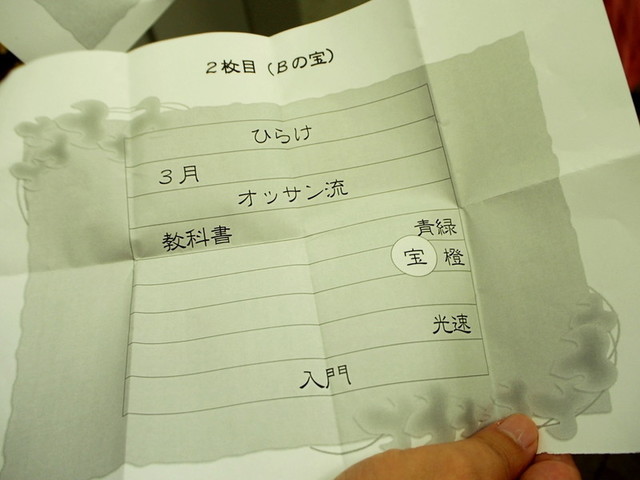 2枚目(Bの宝)
ひらけ
3月
オッサン流
教科書
青緑
宝 橙
光速
入門